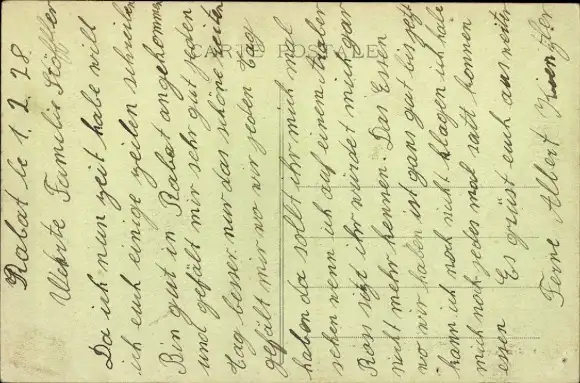 CARTE POSTALE
Rabat le 1. 2. 28.
Wehrte Familie Stöffler
Da ich nun zeit habe will
ich euch einige zeilen schreiben
Bin gut in Rabat angekommen
und gefält mir sehr gut jeden
tag besser nur das schöne reiten
gefält mir wo wir jeden tag
haben da sollt ihr mich mal
sehen wenn ich auf einem Araber
Ross sizt ihr würdet mich gar
nicht mehr kennen. Das Essen
wo wir haben ist gans gut bis jetz
kann ich noch nicht klagen ich habe
mich noch jedes mal satt konnen
essen Es grüst euch aus weiter
Ferne Albert Kienzler